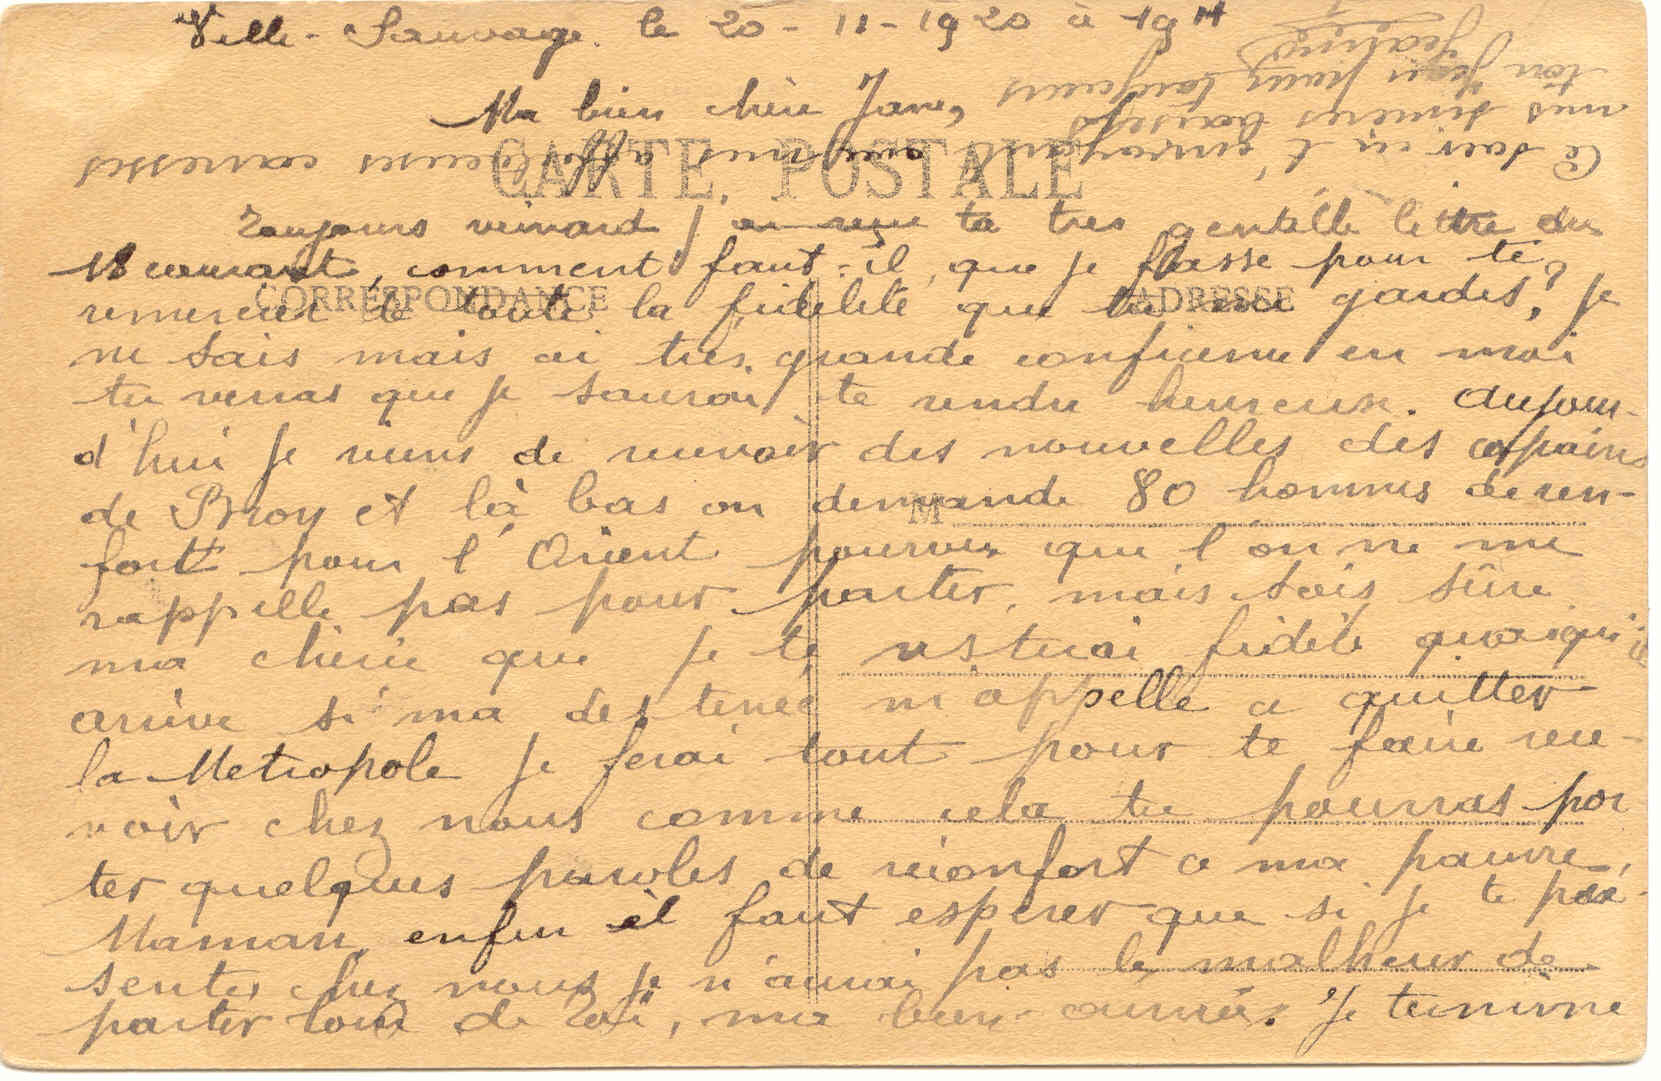 Ville-Sauvage le 20-11-1920 à 19H
Ma bien chère Jane,
CARTE POSTALE
Toujours veinard j'ai reçu ta très gentille lettre du
18 courant, comment faut-il que je fasse pour te
CORRESPONDANCE
ADRESSE
remercier de toute la fidelité que tu me gardes? Je
ne sais mais ai très grande confience en moi
tu verras que je saurai te rendre heureuse. Aujour-
d'hui je viens de recevoir des nouvelles des copains
de Bron et là bas on demande 80 hommes de ren-
M
fort pour l'Orient pourvu que l'on ne me
rappelle pas pour partir, mais sois sûre
ma chérie que je te resterai fidèle quoiqu'il
arrive si ma destenée m'appelle a quitter
la Metropole je ferai tout pour te faire rece-
voir chez nous comme cela tu pourras por
ter quelques paroles de réconfort a ma pauvre
Maman, enfin il faut esperer que si je te pré-
senter chez nous je n'aurai pas le malheur de
parter loin de Toi, ma bien aimée. Je termine
ce soir en t'envoyant avec mes affectueuses caresses
mes sincères baisers
ton Jean pour toujours